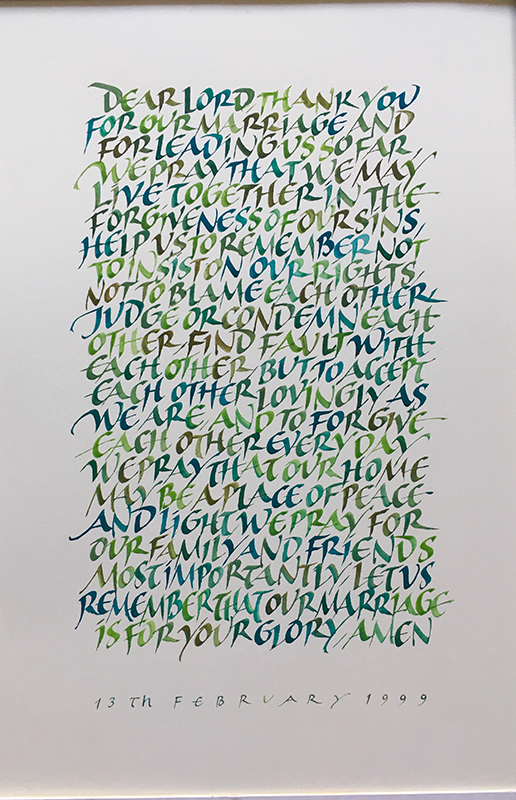 DEAR LORD, THANK YOU
FOR OUR MARRIAGE AND
FOR LEADING US SO FAR,
WE PRAY THAT WE MAY
LIVE TOGETHER IN THE
FORGIVENESS OF OUR SINS,
HELP US TO REMEMBER NOT
TO INSIST ON OUR RIGHTS,
NOT TO BLAME EACH OTHER
JUDGE OR CONDEMN EACH
OTHER FIND FAULT WITH
EACH OTHER BUT TO ACCEPT
EACH OTHER LOVINGLY AS
WE ARE, AND TO FORGIVE
EACH OTHER EVERY DAY
WE PRAY THAT OUR HOME
MAY BE A PLACE OF PEACE
AND LIGHT WE PRAY FOR
OUR FAMILY AND FRIENDS
MOST IMPORTANTLY, LET US
REMEMBER THAT OUR MARRIAGE
IS FOR YOUR GLORY, AMEN
13Th FEBRUARY 1999